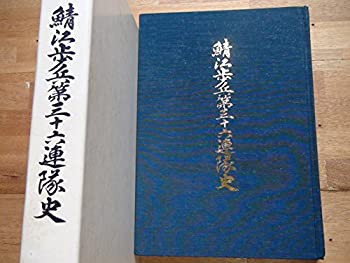 鯖江歩兵第三十六連隊史
鯖江歩兵第三十六連隊史